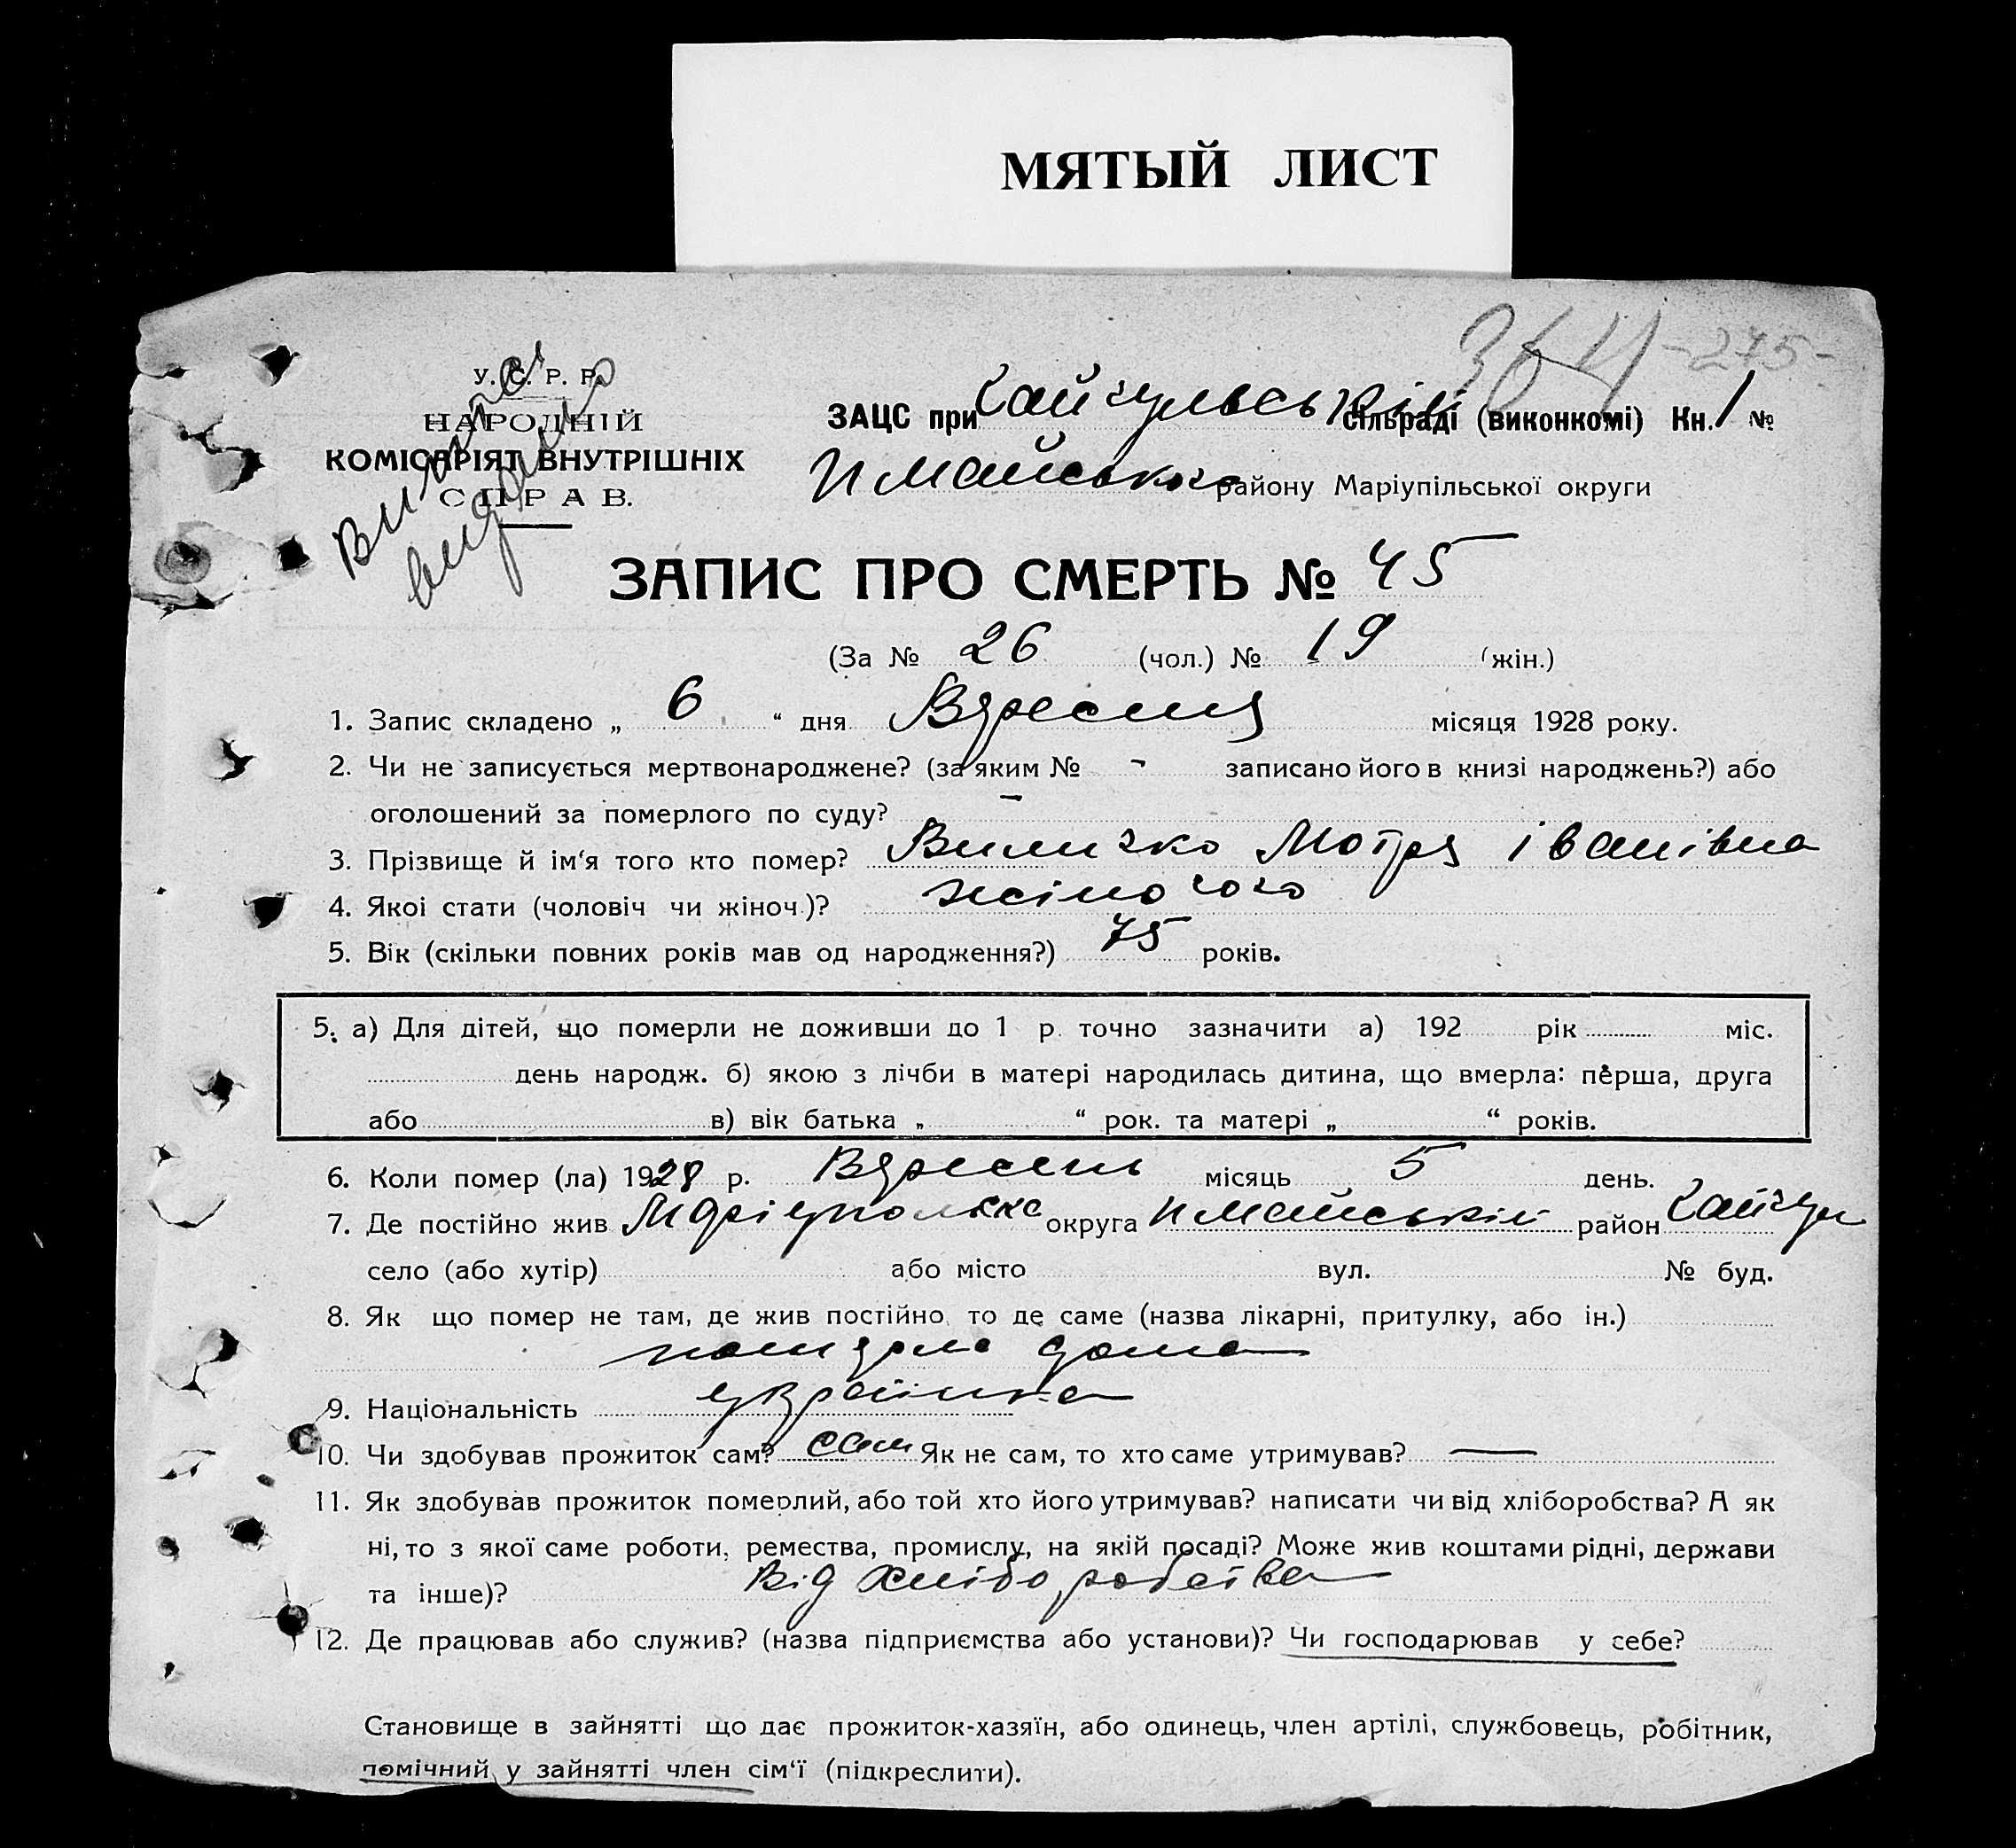 МЯТЫЙ ЛИСТ
364 -275-
Випись
видано
У. С. Р. Р.
НАРОДНІЙ
КОМІСАРІЯТ ВНУТРІШНІХ
СПРАВ.
ЗАЦС при Гайчульській сільраді (виконкомі) Кн. 1 №
П Майського району Маріупільської округи
ЗАПИС ПРО СМЕРТЬ № 45
(За № 26 (чол.) № 19 (жін.)
1. Запис складено „ 6 “ дня Вересня місяця 1928 року.
2. Чи не записується мертвонароджене? (за яким № - записано його в книзі народжень?) або
оголошений за померлого по суду? -
3. Прізвище й ім'я того кто помер? Мотря Іванівна
4. Якоі стати (чоловіч чи жіноч.)? жіночого
5. Вік (скільки повних років мав од народження?) 75 років.
5. а) Для дітей, що померли не доживши до 1 р. точно зазначити а) 192 рік міс.
день народж. б) якою з лічби в матері народилась дитина, що вмерла: перша, друга
або в) вік батька „ “ рок. та матері „ “ років.
6. Коли помер (ла) 1928 р. Вересень місяць 5 день.
7. Де постійно жив Маріупольска округа П Майській район Гайчул
село (або хутір) або місто вул. № буд.
8. Як що помер не там, де жив постійно, то де саме (назва лікарні, притулку, або ін.)
дома
9. Національність українка
10. Чи здобував прожиток сам? сам Як не сам, то хто саме утримував? —
11. Як здобував прожиток померлий, або той хто його утримував? написати чи від хліборобства? А як
ні, то з якої саме роботи, ремества, промислу, на якій посаді? Може жив коштами рідні, держави
та інше)? Від Хліборобства
12. Де працював або служив? (назва підприємства або установи)? Чи господарював у себе?
Становище в зайнятті що дає прожиток-хазяїн, або одинець, член артілі, службовець, робітник,
помічний у зайнятті член сім'ї (підкреслити).